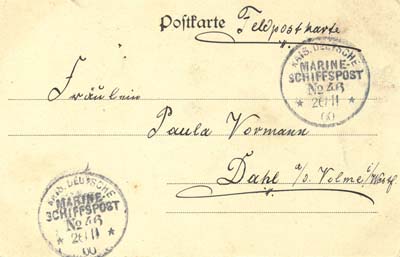 Postkarte Feldpostkarte
KAIS. DEUTSCHE
MARINE-
SCHIFFSPOST
No 46
* 20 11 *
00
Fräulein
Paula Vormann
Dahl a/d. Volme i/Westf.
KAIS. DEUTSCHE
MARINE-
SCHIFFSPOST
No 46
* 20 11 *
00